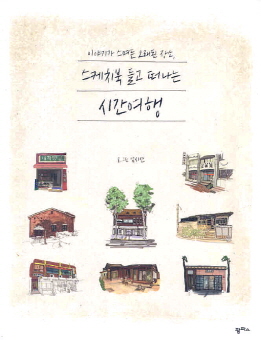 이야기가 스며든 오래된 장소,
스케치북 들고 떠나는
시간여행
팜파스